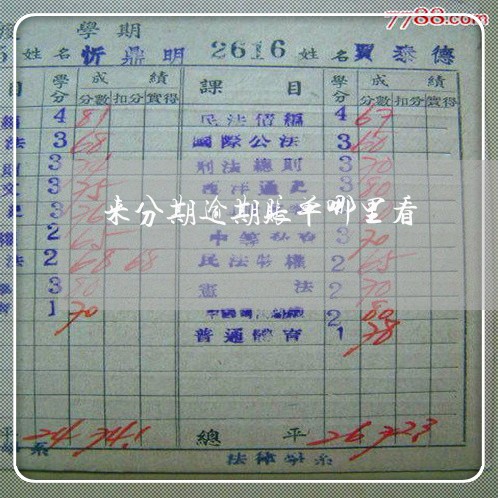 7788.com
學期
姓名 忻鼎明 2616 姓名 賈泰德
目 學分 成績 課目 學分 成績
分數 扣分 實得 分數 扣分 實得
4 81 民法債編 4 67
法 3 68 國際公法 3 60
3 刑法總則 3 70
文 3 75 西洋通史 3 80
來分期逾期账单哪里看
3 76
2 65 3 70
法 2 68 68 民法物權 2 65
3 80 憲法 2 70
育 1 70 2 80
普通體育 1 78
平 24 74.1 總平 26 72.3
系 法律學系